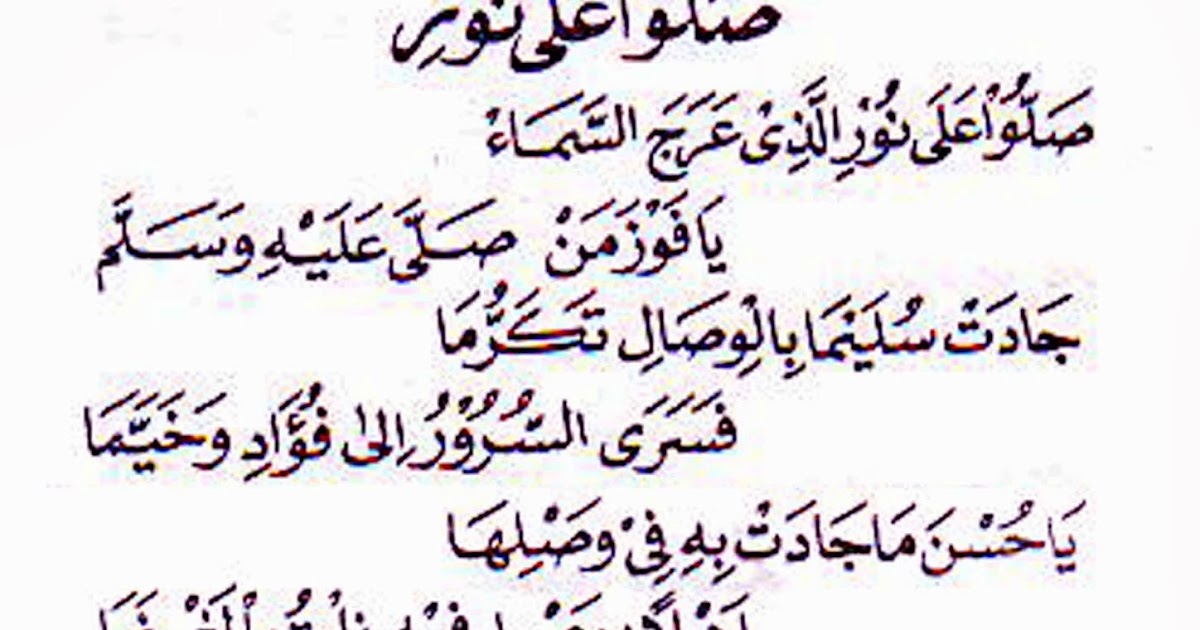 صَلُّوا عَلَى نُورِ
صَلُّوْا عَلَى نُوْرِ الَّذِىْ عَرَجَ السَّمَاءْ
يَا فَوْزَ مَنْ صَلَّى عَلَيْهِ وَسَلَّمَ
جَادَتْ سُلَيْمَا بِالْوِصَالِ تَكَرُّمَا
فَسَرَى السُّرُوْرُ اِلىٰ فُؤَادِ وَخَيَّمَا
يَا حُسْنَ مَا جَادَتْ بِهِ فِىْ وَصْلِهَا